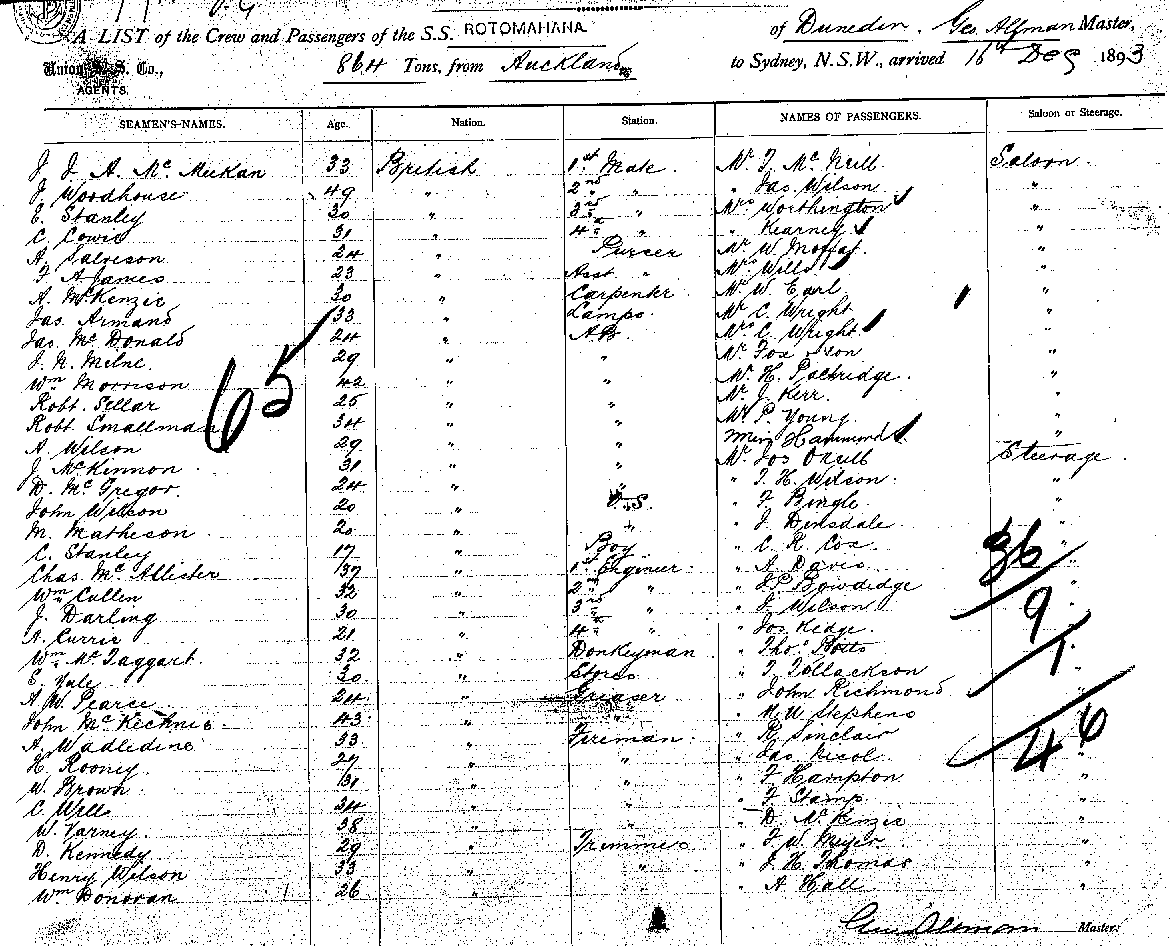 A LIST of the Crew and Passengers of the S.S. ROTOMAHANA of Dunedin, Geo. Master,
Union S.S. Co., AGENTS. 864 Tons, from Auckland to Sydney, N.S.W., arrived 16th Dec 1893
SEAMEN'S-NAMES. Age. Nation. Station. NAMES OF PASSENGERS. Saloon or Steerage.
J. J. A. Mc 33 British 1st Mate. Mr. J. McNeill Saloon.
J. Woodhouse 49 " 2nd " " Jas. Wilson "
E. Stanley 30 " 3rd " Mrs Worthington "
C. Cowie 31 " 4th " " Kearney "
A. Salveson 24 " Purser Mr. W. Moffat. "
F A James 23 " Asst " Mrs Wills "
A. McKenzie 30 " Carpenter. Mr. W. Earl. "
Jas. Armand 33 " Lamps. Mr C. Wright "
Jas. McDonald 24 " AB. Mrs C. Wright "
J. N. Milne. 29 " " Mr Fox & son "
Wm Morrison 42 " " Mr. H. "
Robt. Sellar 25 " " Mr. J. Kerr. "
Robt. Smallman 34 " " Mr P. Young "
65
A. Wilson 29 " " Miss Hammond "
J. McKinnon 31 " " Mr. Jos Steerage.
D. McGregor. 24 " " " J. H. Wilson. "
John Wilson 20 " O.S. " F. Pringle "
M. Matheson 20 " " " J. Dinsdale "
C. Stanley 17 " Boy " C. R. Cox. "
36
Chas. McAllister 37 " 1st Engineer. " A. Davis "
Wm Cullen 32 " 2nd " " Bowdidge "
J. Darling 30 " 3rd " " J. Wilson "
9
A. Currie 21 " 4th " " Jos. Kedge. "
Wm McTaggart. 32 " Donkeyman " Thos "
1
E. Yule 30 " Stores " T. Tollackson
A. W. Pearce 24 " Greaser " John Richmond
John McKechnie 43 " " " Stephens
46
A. 33 " Fireman. " Sinclair
H. Rooney. 27 " " " Jas. Nicol. "
W. Brown. 31 " " " F. Hampton "
C Wells 24 " " " F. Stamp. "
W. Varney. 38 " " " D. McKenzie "
D. Kennedy 29 " Trimmers " F. W. Meyer "
Henry Wilson 33 " " " J. H. Thomas "
Wm Donovan 26 " " " A. Hall "
Master.